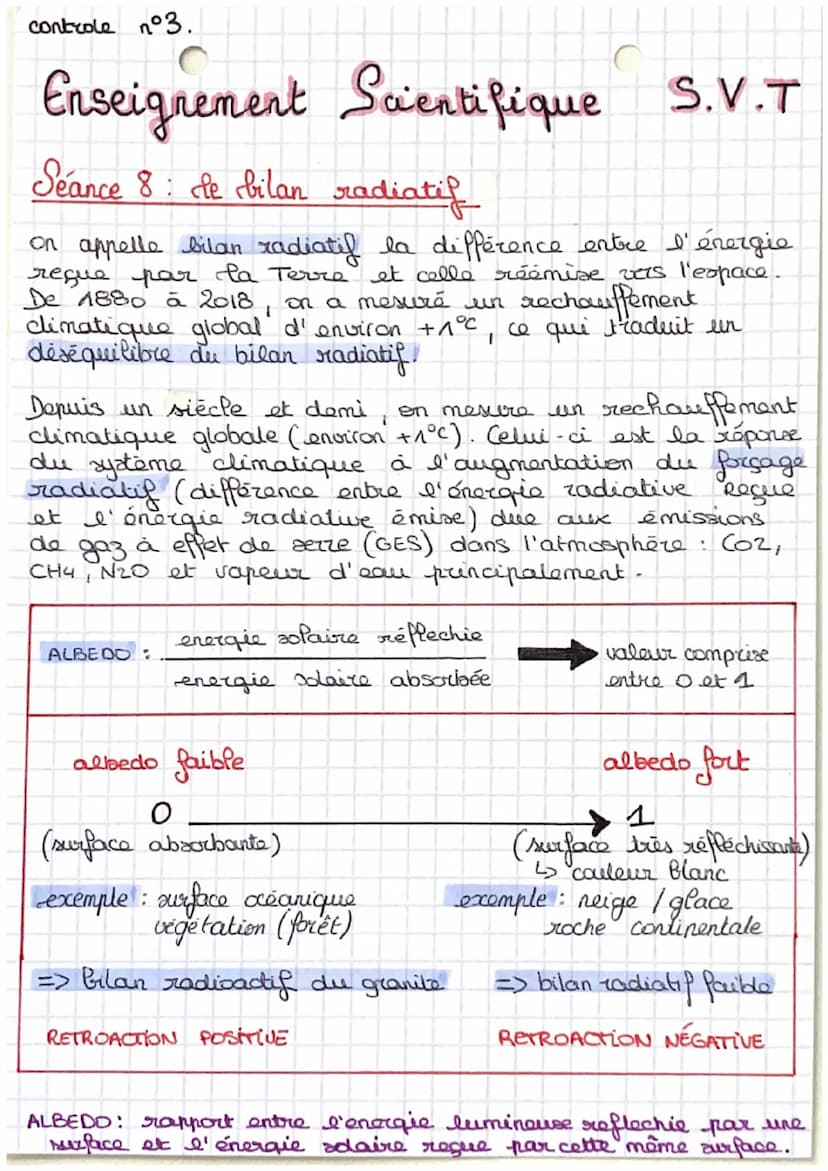 controle n°3.
Enseignement Scientifique S.V.T
Séance 8 : Le bilan radiatif
on appelle bilan radiatif la différence entre l'énergie
reçue par la Terre et celle réémise vers l'espace.
De 1880 à 2018, on a mesuré un rechauffement
climatique global d'environ +1°C, ce qui traduit un
déséquilibre du bilan radiatif.
Depuis un siècle et demi, on mesure un rechauffement
climatique globale (environ +1°C). Celui-ci est la réponse
du système climatique à l'augmentation du forçage
radiatif (différence entre l'énergie radiative reçue
et l'énergie radiative émise) due aux émissions
de gaz à effet de serre (GES) dans l'atmosphère : CO2,
CH4, N2O et vapeur d'eau principalement.
ALBEDO : energie solaire réflechie
energie solaire absorbée
valeur comprise
entre 0 et 1
albedo faible albedo fort
0 1
(surface absorbante) (surface très réfléchissante)
↳ couleur Blanc
exemple : surface océanique exemple : neige / glace
végétation (forêt) roche continentale
=> Bilan radioactif du granite => bilan radiatif faible
RETROACTION POSITIVE RETROACTION NÉGATIVE
ALBEDO : rapport entre l'energie lumineuse reflechie par une
surface et l'énergie solaire reçue par cette même surface.